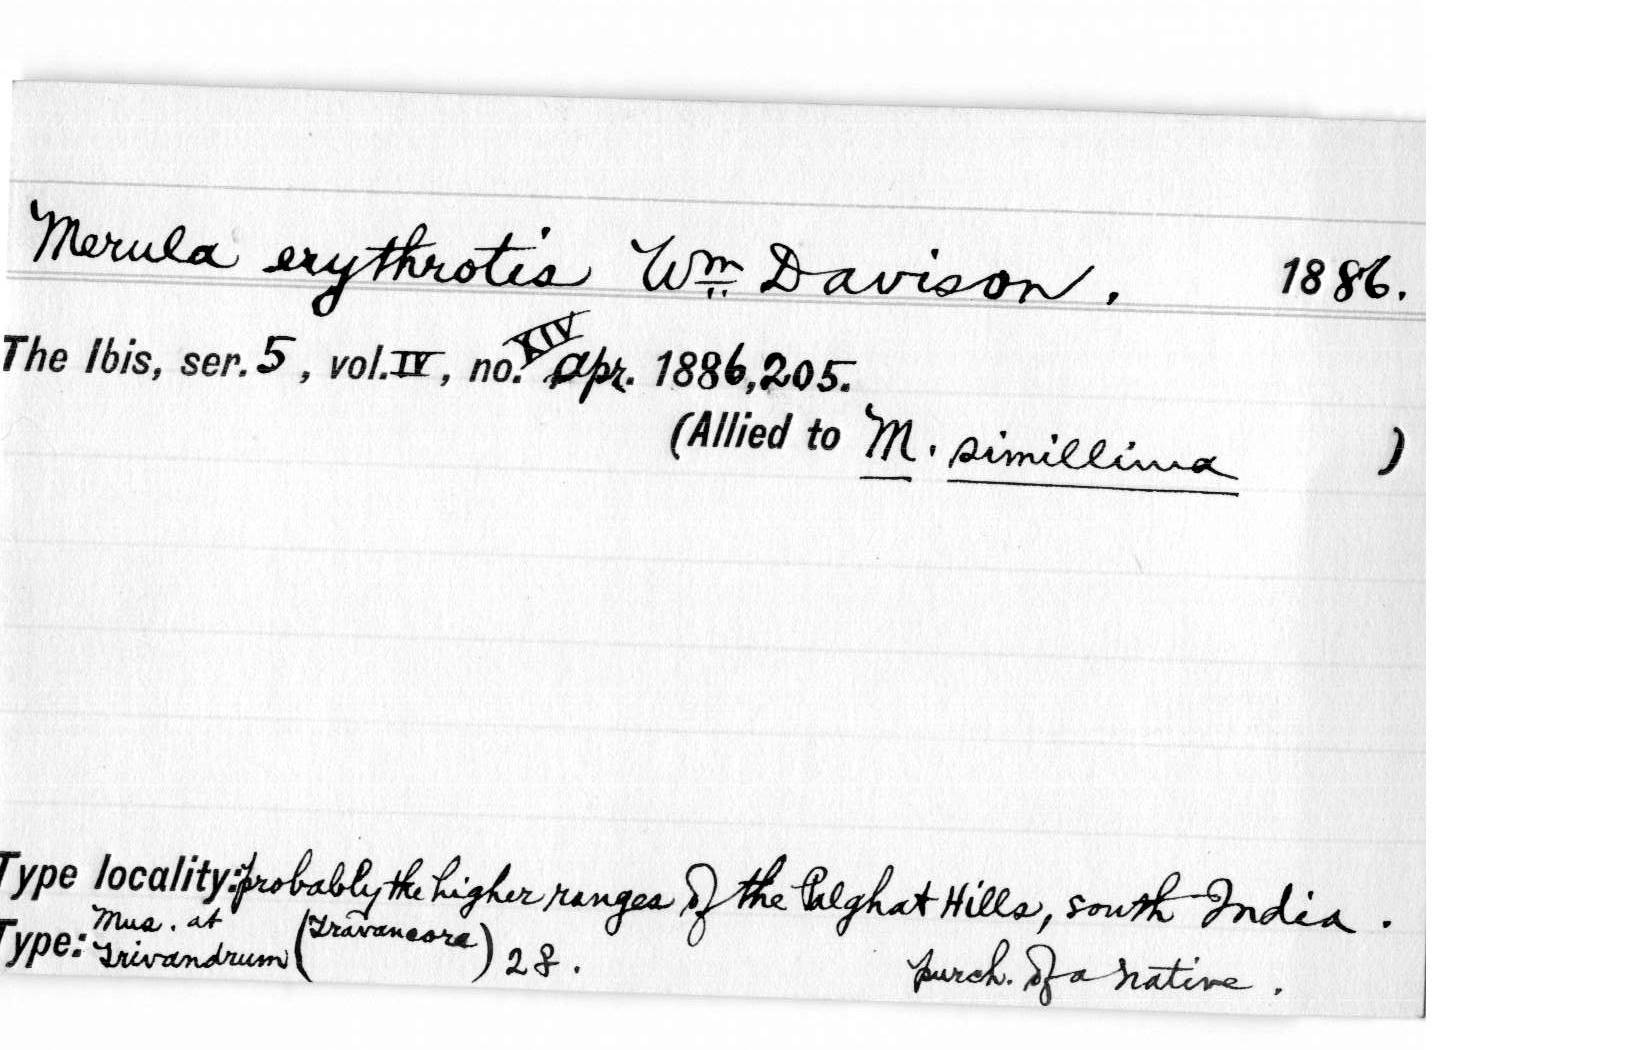 Merula erythrotis Wm Davison, 1886.
The Ibis, ser. 5, vol. IV, no. XIV Apr. 1886, 205.
(Allied to M. simillima )
Type locality: probably the higher ranges of the Palghat Hills, south India.
Type: Mus. at Trivandrum (Travancore) 2 . purch. of a native.